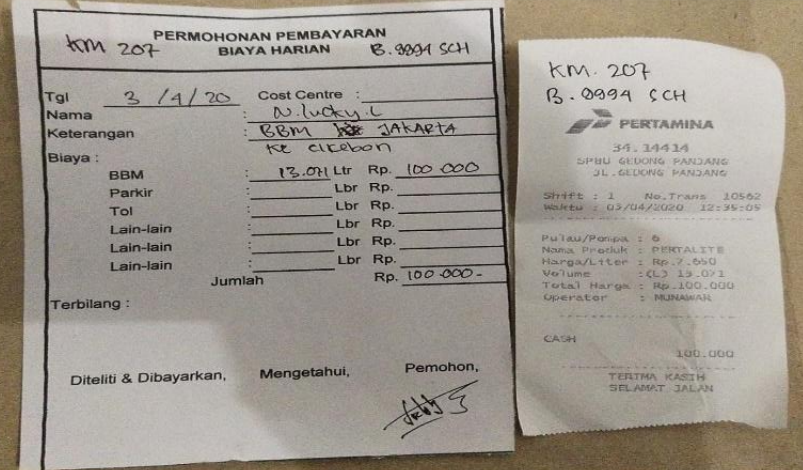 PERMOHONAN PEMBAYARAN
KM 207 BIAYA HARIAN B. 9994 SCH
Tgl 3 /4/ 20 Cost Centre :
Nama : N. lucky. L
Keterangan : BBM JAKARTA
Ke CIREBON
Biaya :
BBM : 13.071 Ltr Rp. 100 000
Parkir : Lbr Rp.
Tol : Lbr Rp.
Lain-lain : Lbr Rp.
Lain-lain : Lbr Rp.
Lain-lain : Lbr Rp.
Jumlah Rp. 100 000-
Terbilang :
Diteliti & Dibayarkan, Mengetahui, Pemohon,
KM. 207
B. 9994 SCH
PERTAMINA
34.14414
SPBU GEDONG PANJANG
JL.GEDONG PANJANG
Shift : 1 No.Trans 10562
Waktu : 03/04/2020 12:35:05
Pulau/Pompa : 6
Nama Produk : PERTALITE
Harga/Liter : Rp.7.650
Volume :(L) 13.071
Total Harga : Rp.100.000
Operator : MUNAWAR
CASH
100.000
TERIMA KASIH
SELAMAT JALAN